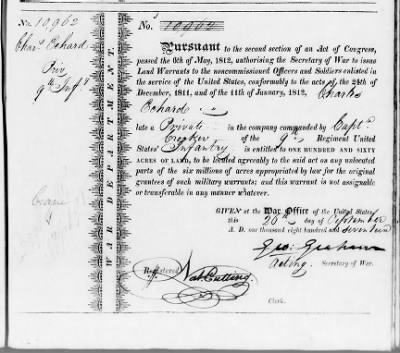 No. 10,962
Chas. Echard
Priv
9th Infy.
WAR DEPARTMENT.
No. 10962
Pursuant to the second section of an Act of Congress,
passed the 6th of May, 1812, authorising the Secretary of War to issue
Land Warrants to the noncommissioned Officers and Soldiers enlisted in
the service of the United States, conformably to the acts of the 24th of
December, 1811, and of the 11th of January, 1812, Charles
Echard
late a Private in the company commanded by Capt.
of the 9th Regiment United
States' Infantry is entitled to ONE HUNDRED AND SIXTY
ACRES OF LAND, to be located agreeably to the said act on any unlocated
parts of the six millions of acres appropriated by law for the original
grantees of such military warrants; and this warrant is not assignable
or transferable in any manner whatever.
GIVEN at the War Office of the United States
this 26th day of September
A. D. one thousand eight hundred and seventeen
Geo: Graham
Acting Secretary of War.
Registered Nat. Cutting
Clerk.